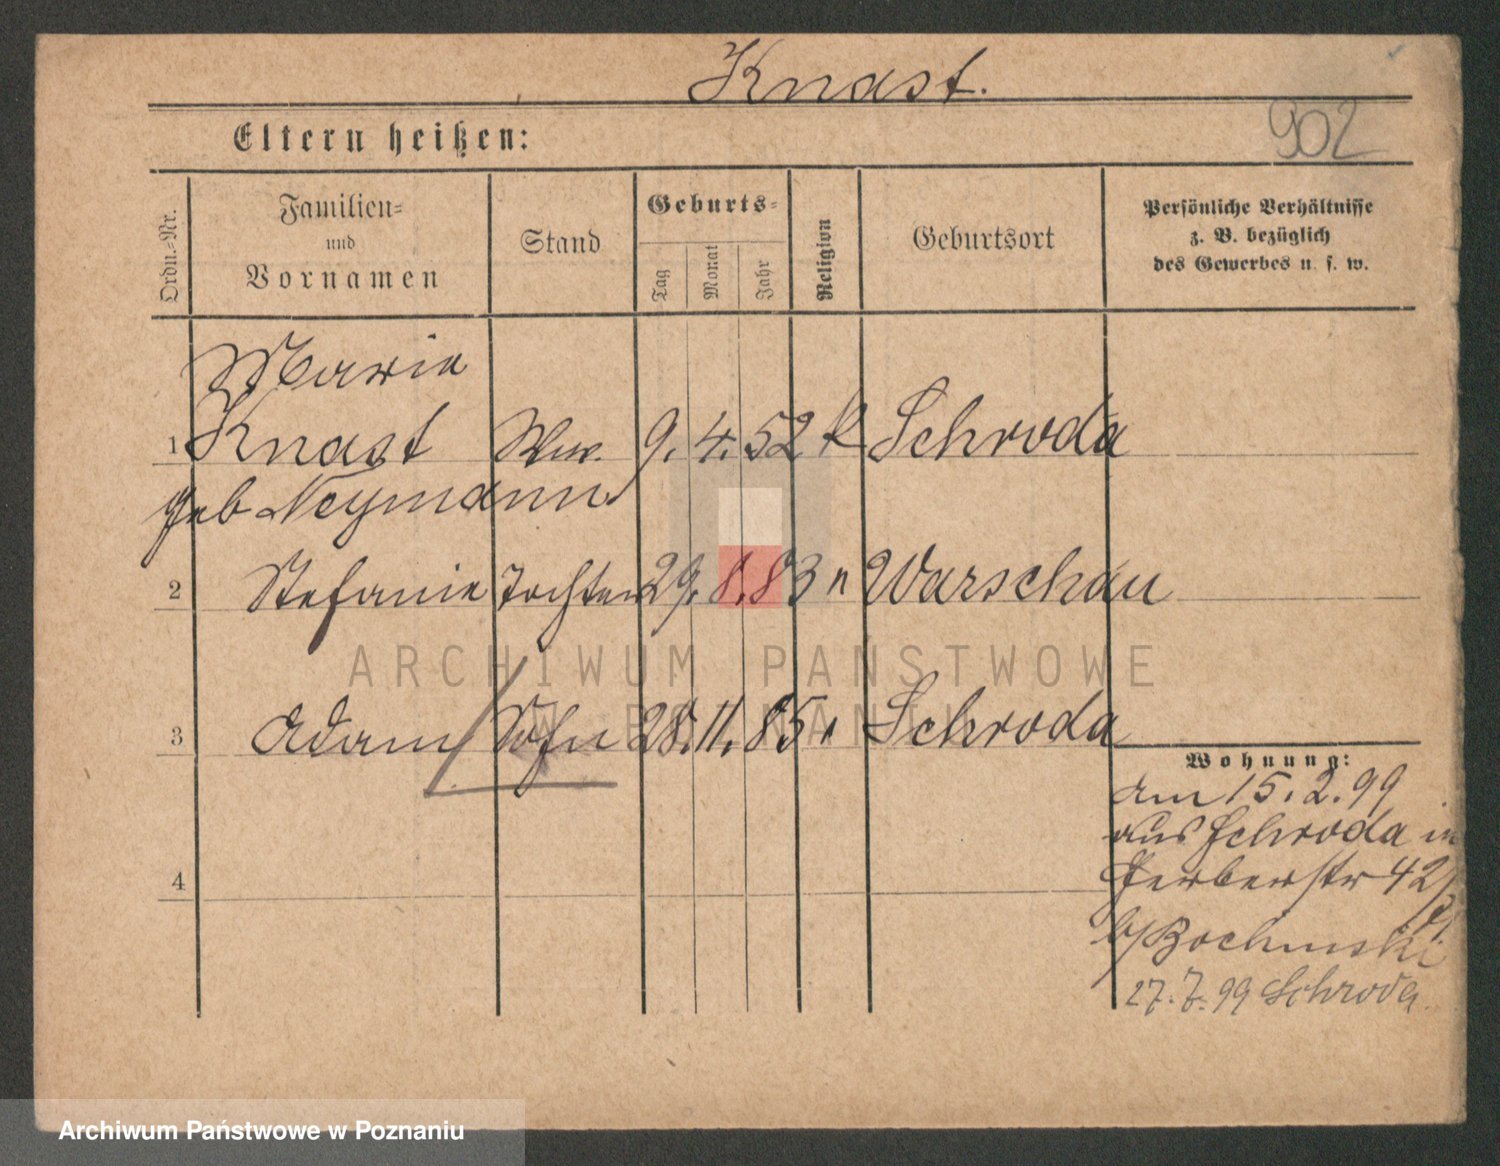 Knast.
902
Eltern heißen:
Ordn.-Nr.
Familien-
und
Vornamen
Stand
Geburts-
Tag
Monat
Jahr
Religion
Geburtsort
Persönliche Verhältnisse
z. B. bezüglich
des Gewerbes u. s. w.
Marie
1 Knast Ww. 9. 4. 52 k Schroda
geb Neymann
2 Stefanie Tochter 29. 8. 83 " Warschau
ARCHIWUM PAŃSTWOWE
W POZNANIU
3 Adam Sohn 28. 11. 85 " Schroda
4
Wohnung:
am 15. 2. 99
aus Schroda in
Gerberstr 42
b/Bochinski
27. 7. 99 Schroda
Archiwum Państwowe w Poznaniu